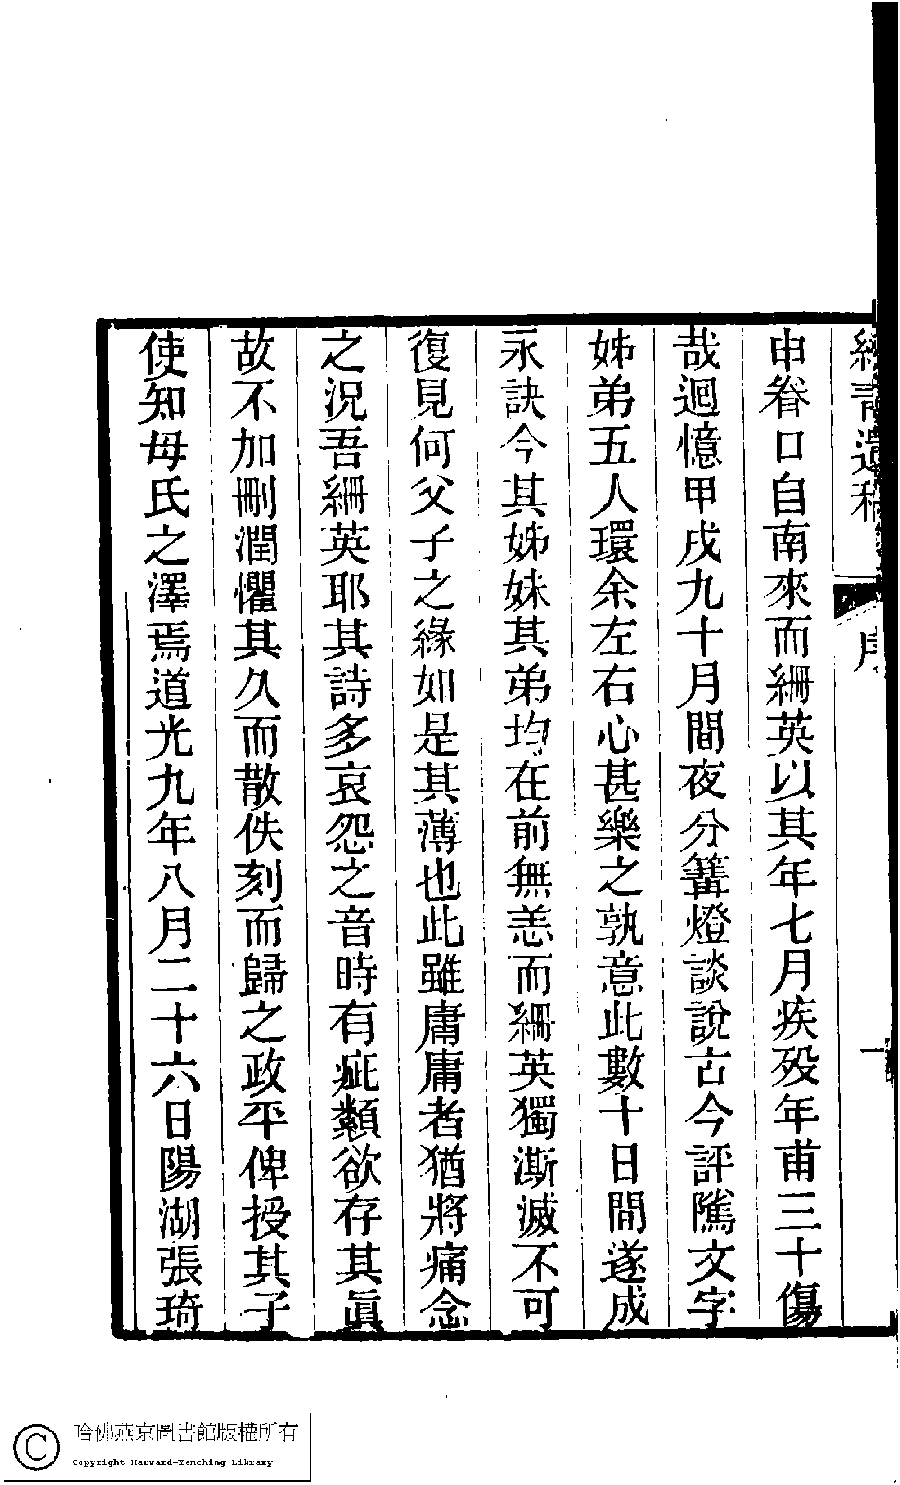 緯青遺稿
序
一
申眷口自南來而緗英以其年七月疾歿年甫三十傷
哉迴憶甲戌九十月間夜分篝燈談說古今評隲文字
姊弟五人環余左右心甚樂之孰意此數十日間遂成
永訣今其姊妹其弟均在前無恙而緗英獨澌滅不可
復見何父子之緣如是其薄也此雖庸庸者猶將痛念
之況吾緗英耶其詩多哀怨之音時有疵纇欲存其眞
故不加刪潤懼其久而散佚刻而歸之政平俾授其子
使知母氏之澤焉道光九年八月二十六日陽湖張琦
哈佛燕京圖書館版權所有
Copyright Harvard-Yenching Library